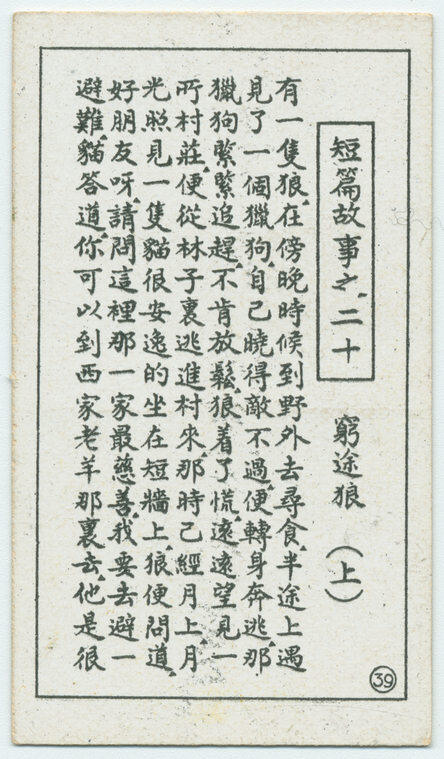 短篇故事之二十
窮途狼（上）
有一隻狼，在傍晚時候到野外去尋食，半途上遇
見了一個獵狗，自己曉得敵不過，便轉身奔逃，那
獵狗緊緊追趕，不肯放鬆，狼着了慌，遠遠望見一
所村莊，便從林子裏逃進村來，那時已經月上，月
光照見一隻貓很安逸的坐在短牆上，狼便問道，
好朋友呀，請問這裡那一家最慈善，我要去避一
避難，貓答道，你可以到西家老羊那裏去，他是很
39